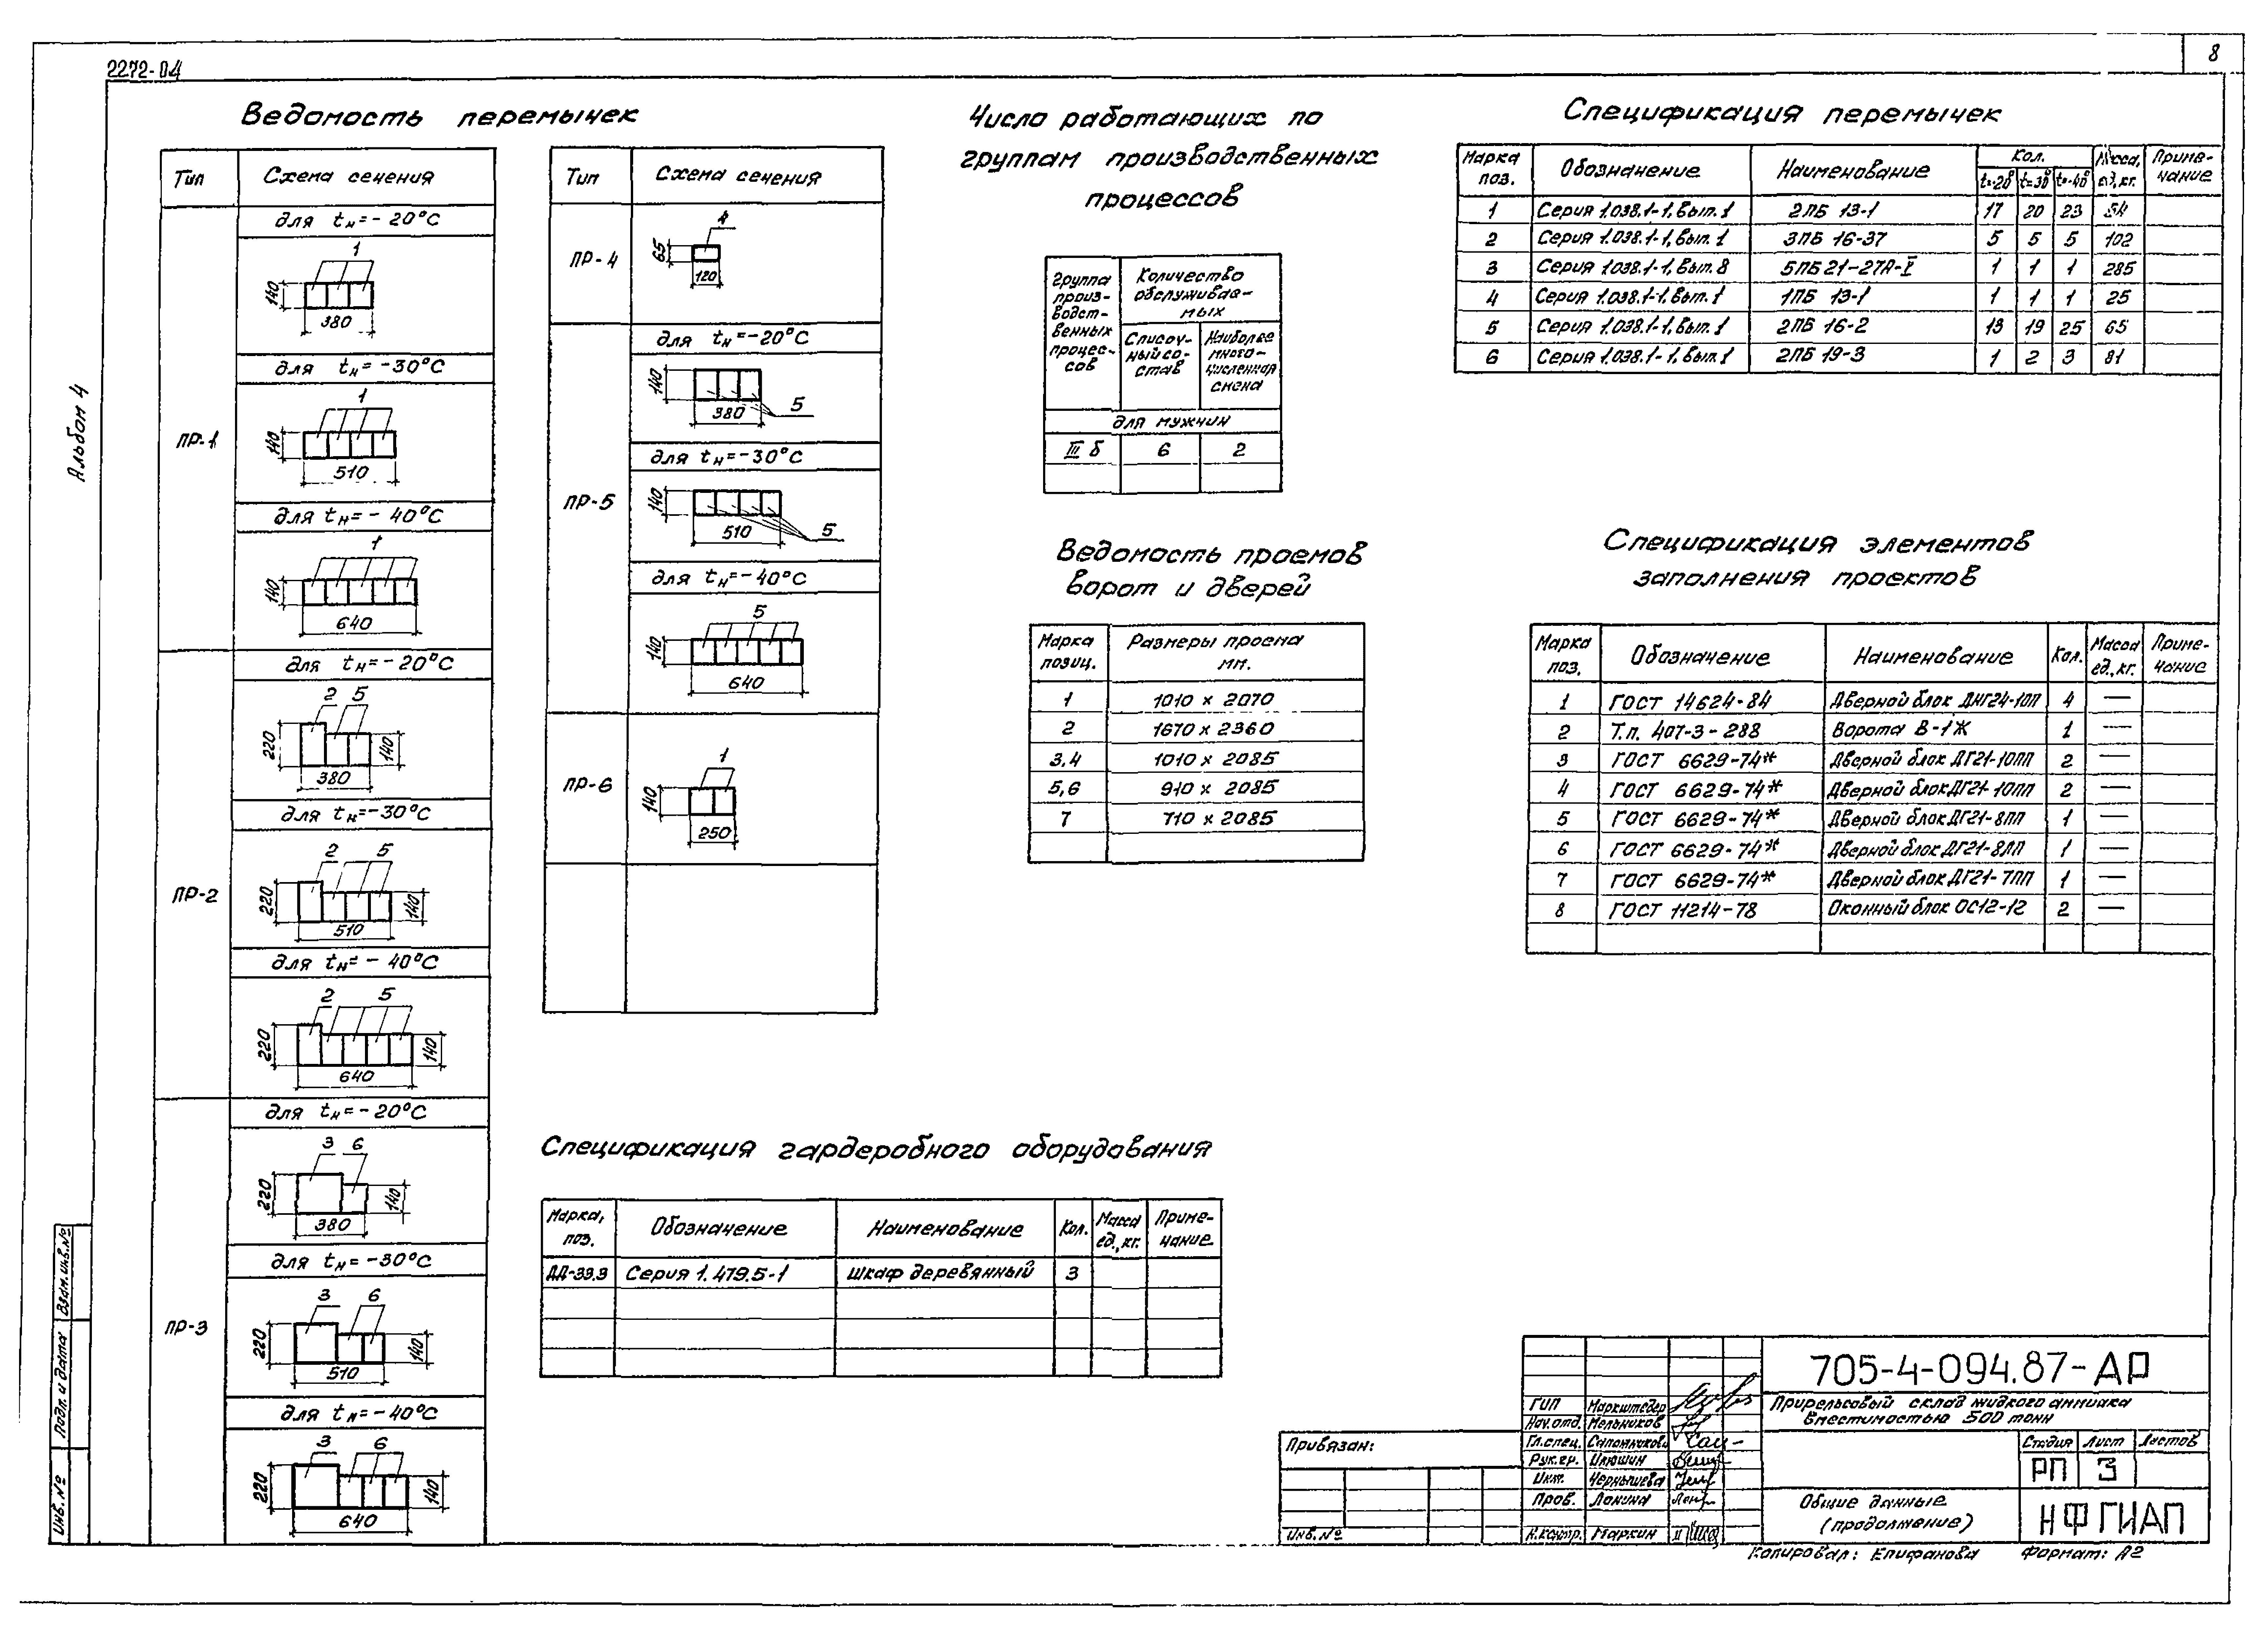 8
2272-04
Альбом 4
Ведомость перемычек
Тип Схема сечения
ПР-1
для tн=-20°С
1
140
380
для tн=-30°С
1
140
510
для tн=-40°С
1
140
640
ПР-2
для tн=-20°С
2 5
220 140
380
для tн=-30°С
2 5
220 140
510
для tн=-40°С
2 5
220 140
640
ПР-3
для tн=-20°С
3 6
220 140
380
для tн=-30°С
3 6
220 140
510
для tн=-40°С
3 6
220 140
640
Тип Схема сечения
ПР-4
4
65
120
ПР-5
для tн=-20°С
140
380 5
для tн=-30°С
140
510 5
для tн=-40°С
5
140
640
ПР-6
1
140
250
Число работающих по
группам производственных
процессов
Группа
произ-
водст-
венных
процес-
сов
Количество
обслуживае-
мых
Списоч-
ный со-
став
Наиболее
много-
численная
смена
для мужчин
III б 6 2
Ведомость проемов
ворот и дверей
Марка
позиц.
Размеры проема
мм.
1 1010 x 2070
2 1670 x 2360
3,4 1010 x 2085
5,6 910 x 2085
7 710 x 2085
Спецификация перемычек
Марка
поз.
Обозначение
Наименование
Кол.
t=-20° t=-30° t=-40°
Масса,
ед,кг.
Приме-
чание
1 Серия 1.038.1-1, вып.1 2ПБ 13-1 17 20 23 54
2 Серия 1.038.1-1, вып.1 3ПБ 16-37 5 5 5 102
3 Серия 1.038.1-1, вып.8 5ПБ21-27А-I 1 1 1 285
4 Серия 1.038.1-1, вып.1 1ПБ 13-1 1 1 1 25
5 Серия 1.038.1-1, вып.1 2ПБ 16-2 13 19 25 65
6 Серия 1.038.1-1, вып.1 2ПБ 19-3 1 2 3 81
Спецификация элементов
заполнения проектов
Марка
поз.
Обозначение
Наименование
Кол.
Масса
ед.,кг.
Приме-
чание
1 ГОСТ 14624-84 Дверной блок ДНГ24-10ПП 4 —
2 Т.п. 407-3-288 Ворота В-1Ж 1 —
3 ГОСТ 6629-74* Дверной блок ДГ21-10ПП 2 —
4 ГОСТ 6629-74* Дверной блок ДГ21-10ПП 2 —
5 ГОСТ 6629-74* Дверной блок ДГ21-8ПП 1 —
6 ГОСТ 6629-74* Дверной блок ДГ21-8ЛП 1 —
7 ГОСТ 6629-74* Дверной блок ДГ21-7ПП 1 —
8 ГОСТ 11214-78 Оконный блок ОС12-12 2 —
Спецификация гардеробного оборудования
Марка,
поз.
Обозначение
Наименование
Кол.
Масса
ед.,кг.
Приме-
чание
ДД-33.3 Серия 1.479.5-1 Шкаф деревянный 3
Взам. инв.№
Подп. и дата
Инв. №
Привязан:
Инв.№
ГИП Маркштедер
Нач.отд. Мельников
Гл.спец. Сапожникова
Рук.гр. Илюшин
Инж. Чернышева
Пров. Лонина
Н.контр. Маркин
705-4-094.87-АР
Прирельсовый склад жидкого аммиака
вместимостью 500 тонн
Стадия Лист Листов
РП 3
Общие данные
(продолжение)
НФ ГИАП
Копировал: Епифанова Формат: А2